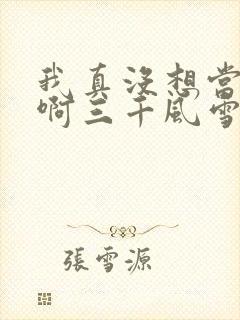 我真没想当
啊三千风雪
張雪源